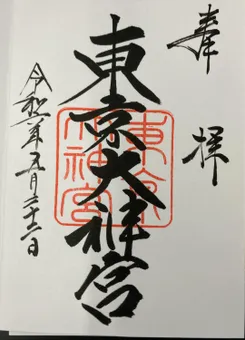 奉拝
東京大神宮
東京大神宮
令和二年五月二十二日